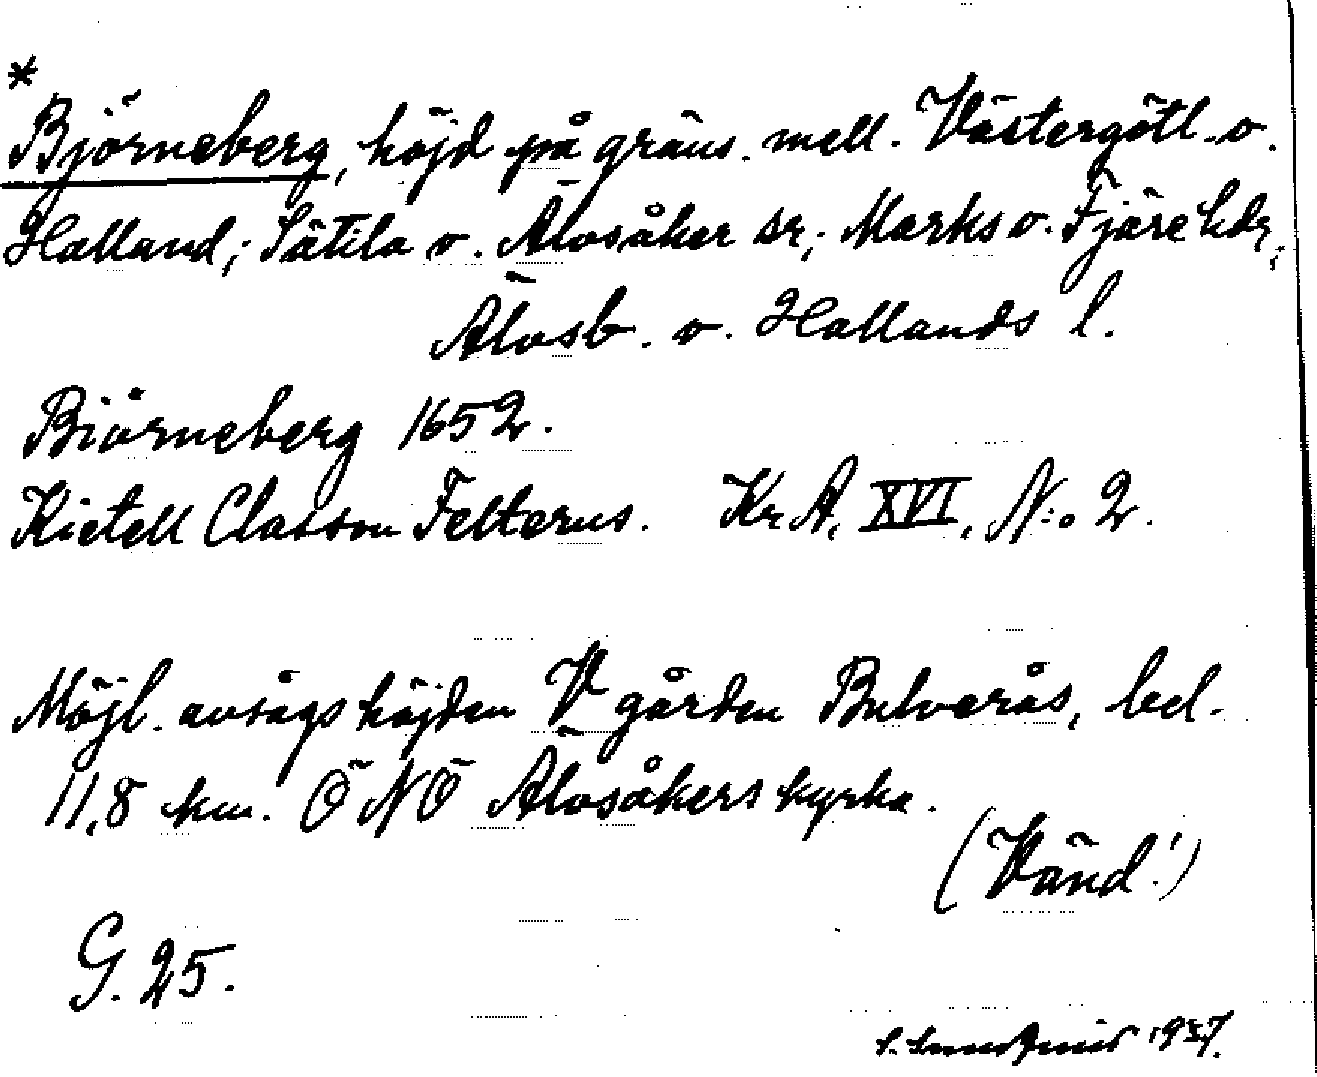 *
Björneberg, höjd på gräns. mell. Västergötl. o.
Halland; Sätila o. Älvsåker sr; Marks o. Fjäre hdr;
Älvsb. o. Hallands l.
Biörneberg 1652.
Kietell Classon Felterus. Kr A, XVI, N:o 2.
Möjl. avságs höjden V gården Bulverås, bel.
11,8 km. ÖNÖ Älvsåkers kyrka.
(Vänd!)
G. 25.
1937.